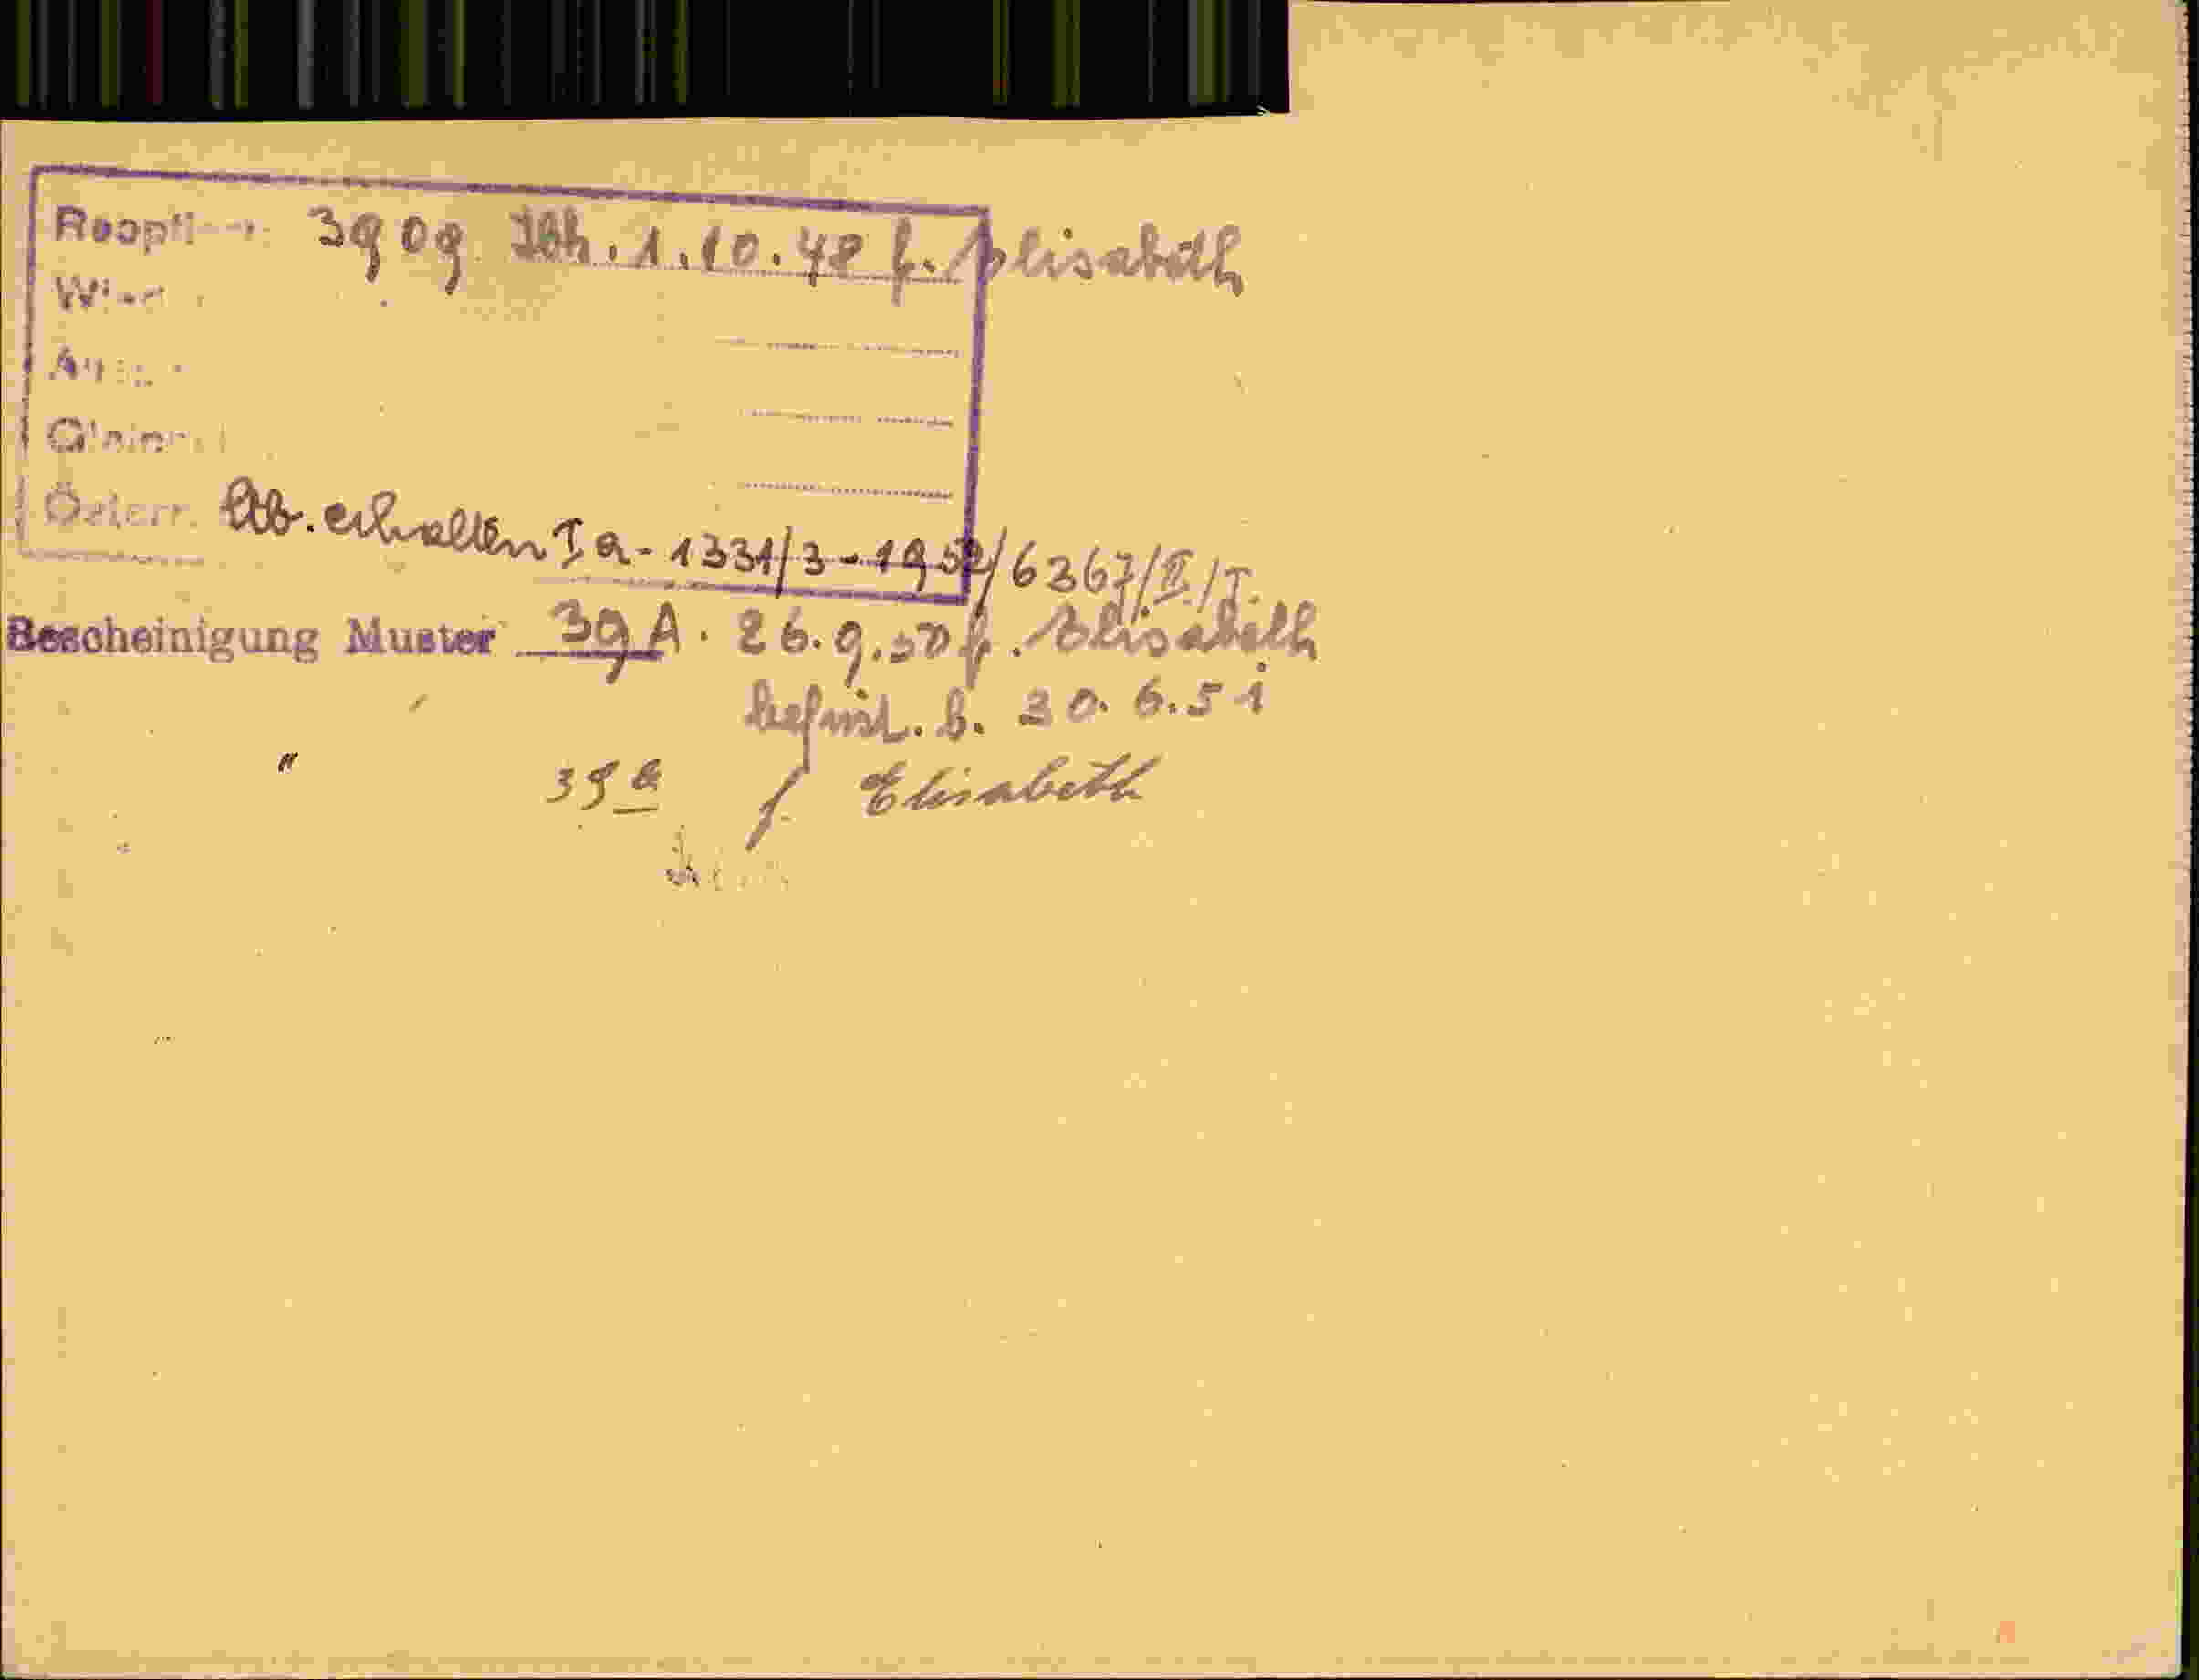 3909 1.10.48 f. Elisabeth
Österr. Stb. erhalten Ia - 1331/3 - 1952/6367/II./I.
Bescheinigung Muster 39 A. 26.9.50 f. Elisabeth
befrist. b. 30.6.51
" 39a f. Elisabeth